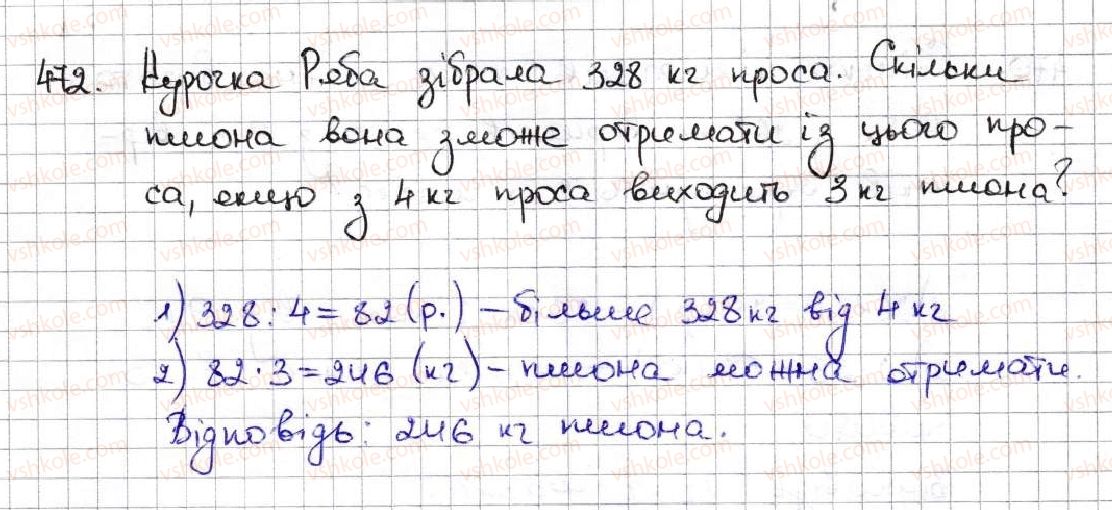 472. Курочка Ряба зібрала 328 кг проса. Скільки
пшона вона зможе отримати із цього про-
са, якщо з 4 кг проса виходить 3 кг пшона?
1) 328 : 4 = 82 (р.) – більше 328 кг від 4 кг
2) 82 · 3 = 246 (кг) – пшона можна отримати.
Відповідь: 246 кг пшона.